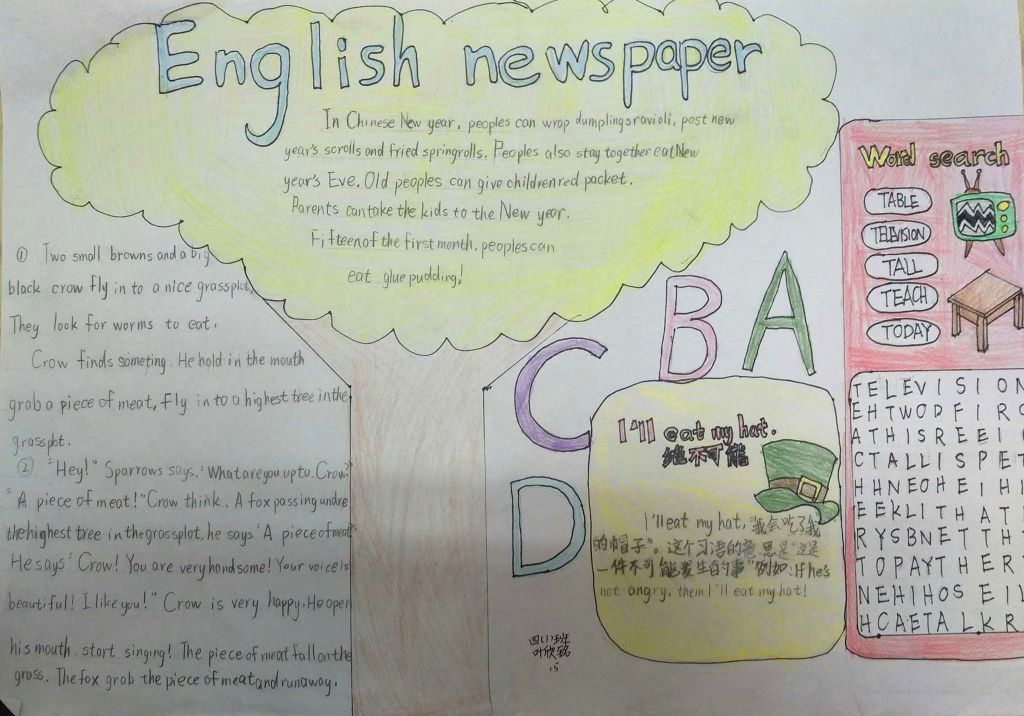 English newspaper
In Chinese New year, peoples can wrap dumplings ravioli, post new
year's scrolls and fried springrolls. Peoples also stay together eat New
year's Eve. Old peoples can give children red packet.
Parents can take the kids to the New year.
Fifteen of the first month, peoples can
eat glue pudding!
① Two small browns and a big
black crow fly in to a nice grassplot,
They look for worms to eat.
Crow finds someting. He hold in the mouth
grab a piece of meat, fly in to a highest tree in the
grassplot.
② "Hey!" Sparrows says. "What are you up to. Crow?"
"A piece of meat!" Crow think. A fox passing undre
the highest tree in the grassplot, he says "A piece of meat"
He says "Crow! You are very handsome! Your voice is
beautiful! I like you!" Crow is very happy. He open
his mouth start singing! The piece of meat fall on the
grass. The fox grab the piece of meat and run away.
A
B
C
D
I'll eat my hat.
绝不可能
I'll eat my hat, 我会吃了我
的帽子"。这个习语的意思是"这是
一件不可能发生的事"例如:If he's
not angry, them I'll eat my hat!
四(1)班
叶欣铭
.5
Word search
TABLE
TELEVISION
TALL
TEACH
TODAY
TELEVISION
EHTWODFIRC
ATHISREEI
CTALLISPET
HHNEOHEIHI
EEKLITHATI
RYSBNETTH
TOPAYTHER
NEHIHOSEIL
HCAETALKR